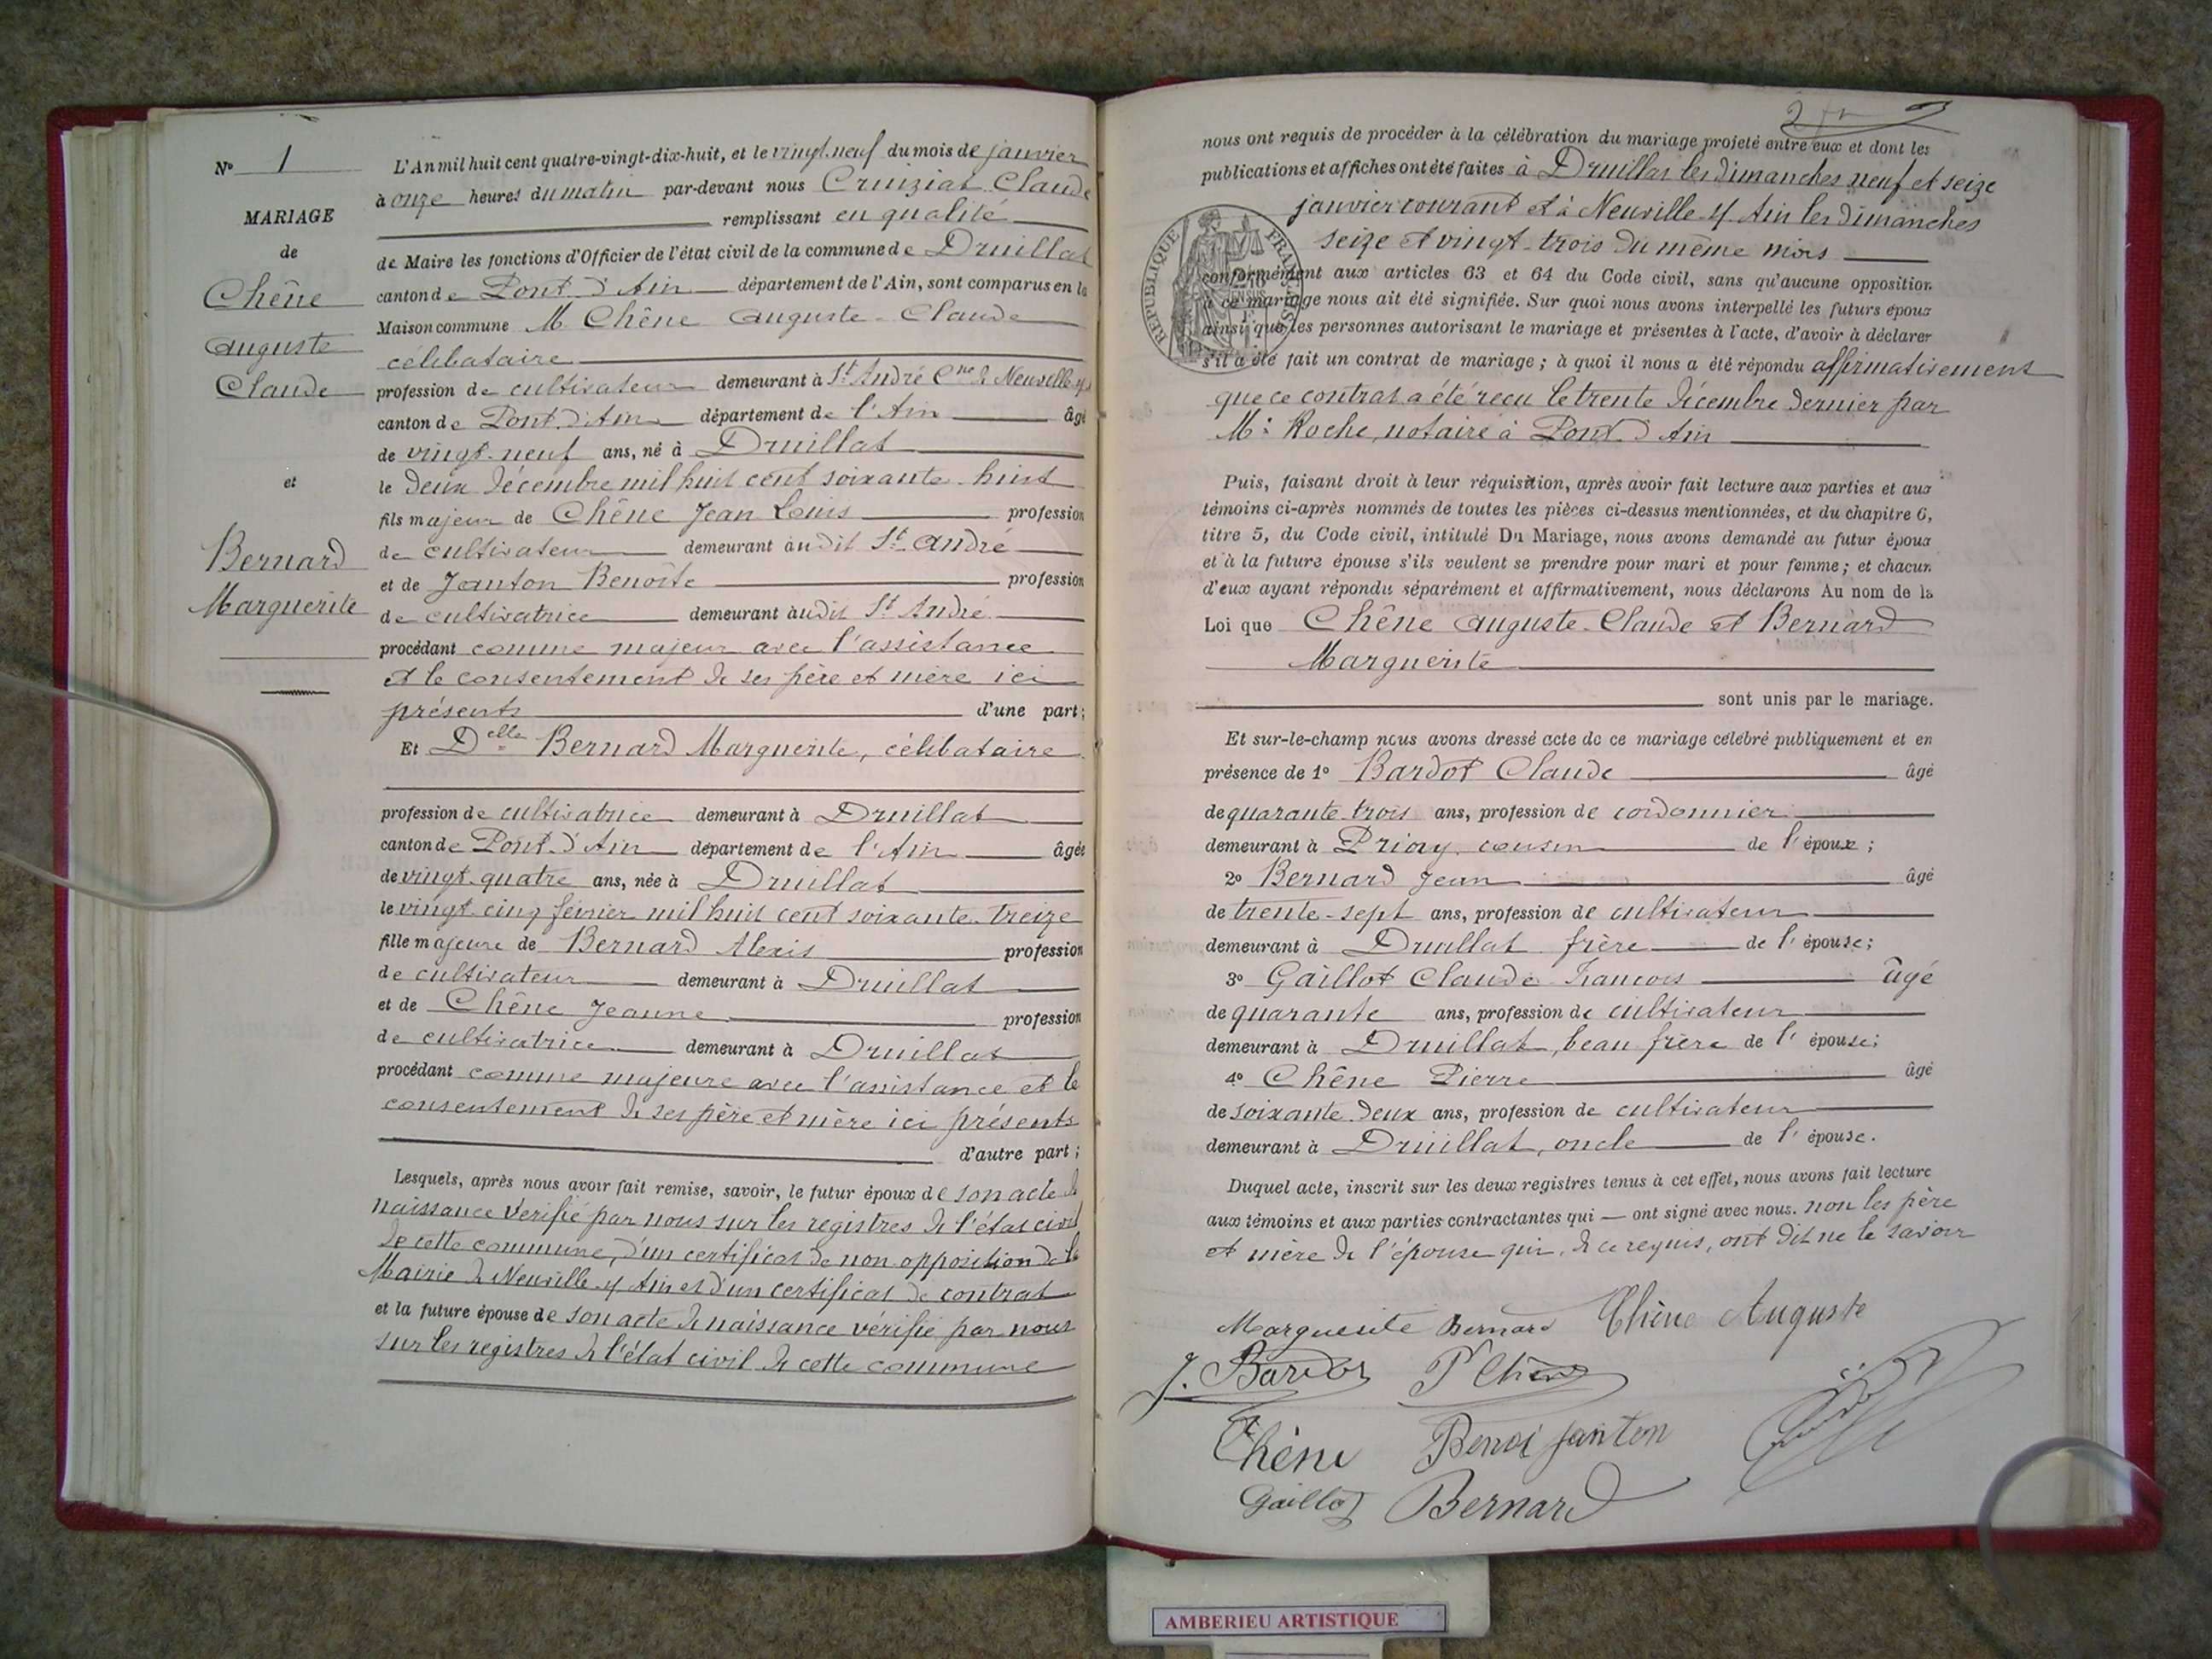 N° 1
MARIAGE
de
Chêne
Auguste
Claude
et
Bernard
Marguerite
L'An mil huit cent quatre-vingt-dix-huit, et le vingt-neuf du mois de janvier
à onze heures du matin par-devant nous Cruiziat Claude
remplissant en qualité
de Maire les fonctions d'Officier de l'état civil de la commune de Druillat
canton de Pont d'Ain département de l'Ain, sont comparus en la
Maison commune M Chêne Auguste-Claude
célibataire
profession de cultivateur demeurant à St André Cne de Neuville s/
canton de Pont d'Ain département de l'Ain âgé
de vingt-neuf ans, né à Druillat
le deux décembre mil huit cent soixante-huit
fils majeur de Chêne Jean Louis profession
de cultivateur demeurant audit St André
et de Jeanton Benoîte profession
de cultivatrice demeurant audit St André
procédant comme majeur avec l'assistance
et le consentement de ses père et mère ici
présents d'une part;
Et Delle Bernard Marguerite, célibataire
profession de cultivatrice demeurant à Druillat
canton de Pont d'Ain département de l'Ain âgée
de vingt-quatre ans, née à Druillat
le vingt-cinq février mil huit cent soixante-treize
fille majeure de Bernard Alexis profession
de cultivateur demeurant à Druillat
et de Chêne Jeanne profession
de cultivatrice demeurant à Druillat
procédant comme majeure avec l'assistance et le
consentement de ses père et mère ici présents
d'autre part;
Lesquels, après nous avoir fait remise, savoir, le futur époux de son acte de
naissance vérifié par nous sur les registres de l'état civil
de cette commune, d'un certificat de non opposition de la
Mairie de Neuville s/ Ain et d'un certificat de contrat
et la future épouse de son acte de naissance vérifié par nous
sur les registres de l'état civil de cette commune
2
nous ont requis de procéder à la célébration du mariage projeté entre eux et dont les
publications et affiches ont été faites à Druillat les dimanches neuf et seize
janvier courant et à Neuville s/ Ain les dimanches
seize et vingt-trois du même mois
RÉPUBLIQUE FRANÇAISE
conformément aux articles 63 et 64 du Code civil, sans qu'aucune opposition
à ce mariage nous ait été signifiée. Sur quoi nous avons interpellé les futurs époux
ainsi que les personnes autorisant le mariage et présentes à l'acte, d'avoir à déclarer
s'il a été fait un contrat de mariage; à quoi il nous a été répondu affirmativement
que ce contrat a été reçu le trente décembre dernier par
Me Roche, notaire à Pont d'Ain
Puis, faisant droit à leur réquisition, après avoir fait lecture aux parties et aux
témoins ci-après nommés de toutes les pièces ci-dessus mentionnées, et du chapitre 6,
titre 5, du Code civil, intitulé Du Mariage, nous avons demandé au futur époux
et à la future épouse s'ils veulent se prendre pour mari et pour femme; et chacun
d'eux ayant répondu séparément et affirmativement, nous déclarons Au nom de la
Loi que Chêne Auguste-Claude et Bernard
Marguerite
sont unis par le mariage.
Et sur-le-champ nous avons dressé acte de ce mariage célébré publiquement et en
présence de 1° Bardot Claude âgé
de quarante trois ans, profession de cordonnier
demeurant à Priay, cousin de l'époux;
2° Bernard Jean âgé
de trente-sept ans, profession de cultivateur
demeurant à Druillat frère de l'épouse;
3° Gaillot Claude François âgé
de quarante ans, profession de cultivateur
demeurant à Druillat, beau frère de l'épouse;
4° Chêne Pierre âgé
de soixante deux ans, profession de cultivateur
demeurant à Druillat, oncle de l'épouse.
Duquel acte, inscrit sur les deux registres tenus à cet effet, nous avons fait lecture
aux témoins et aux parties contractantes qui — ont signé avec nous. non les père
et mère de l'épouse qui, de ce requis, ont dit ne le savoir
Marguerite Bernard Chêne Auguste
J. Bardot P Chêne
Chêne Benoi janton
Gaillot Bernard
AMBERIEU ARTISTIQUE